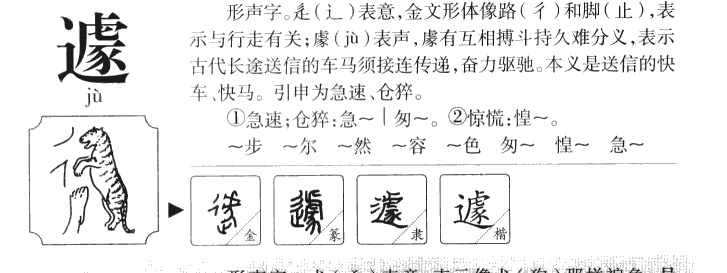 遽
jù
形声字。辵(辶)表意,金文形体像路(彳)和脚(止),表
示与行走有关;豦(jù)表声,豦有互相搏斗持久难分义,表示
古代长途送信的车马须接连传递,奋力驱驰。本义是送信的快
车、快马。引申为急速、仓猝。
①急速;仓猝:急～｜匆～。②惊慌:惶～。
～步 ～尔 ～然 ～容 ～色 匆～ 惶～ 急～
金
遽 篆
遽 隶
遽 楷